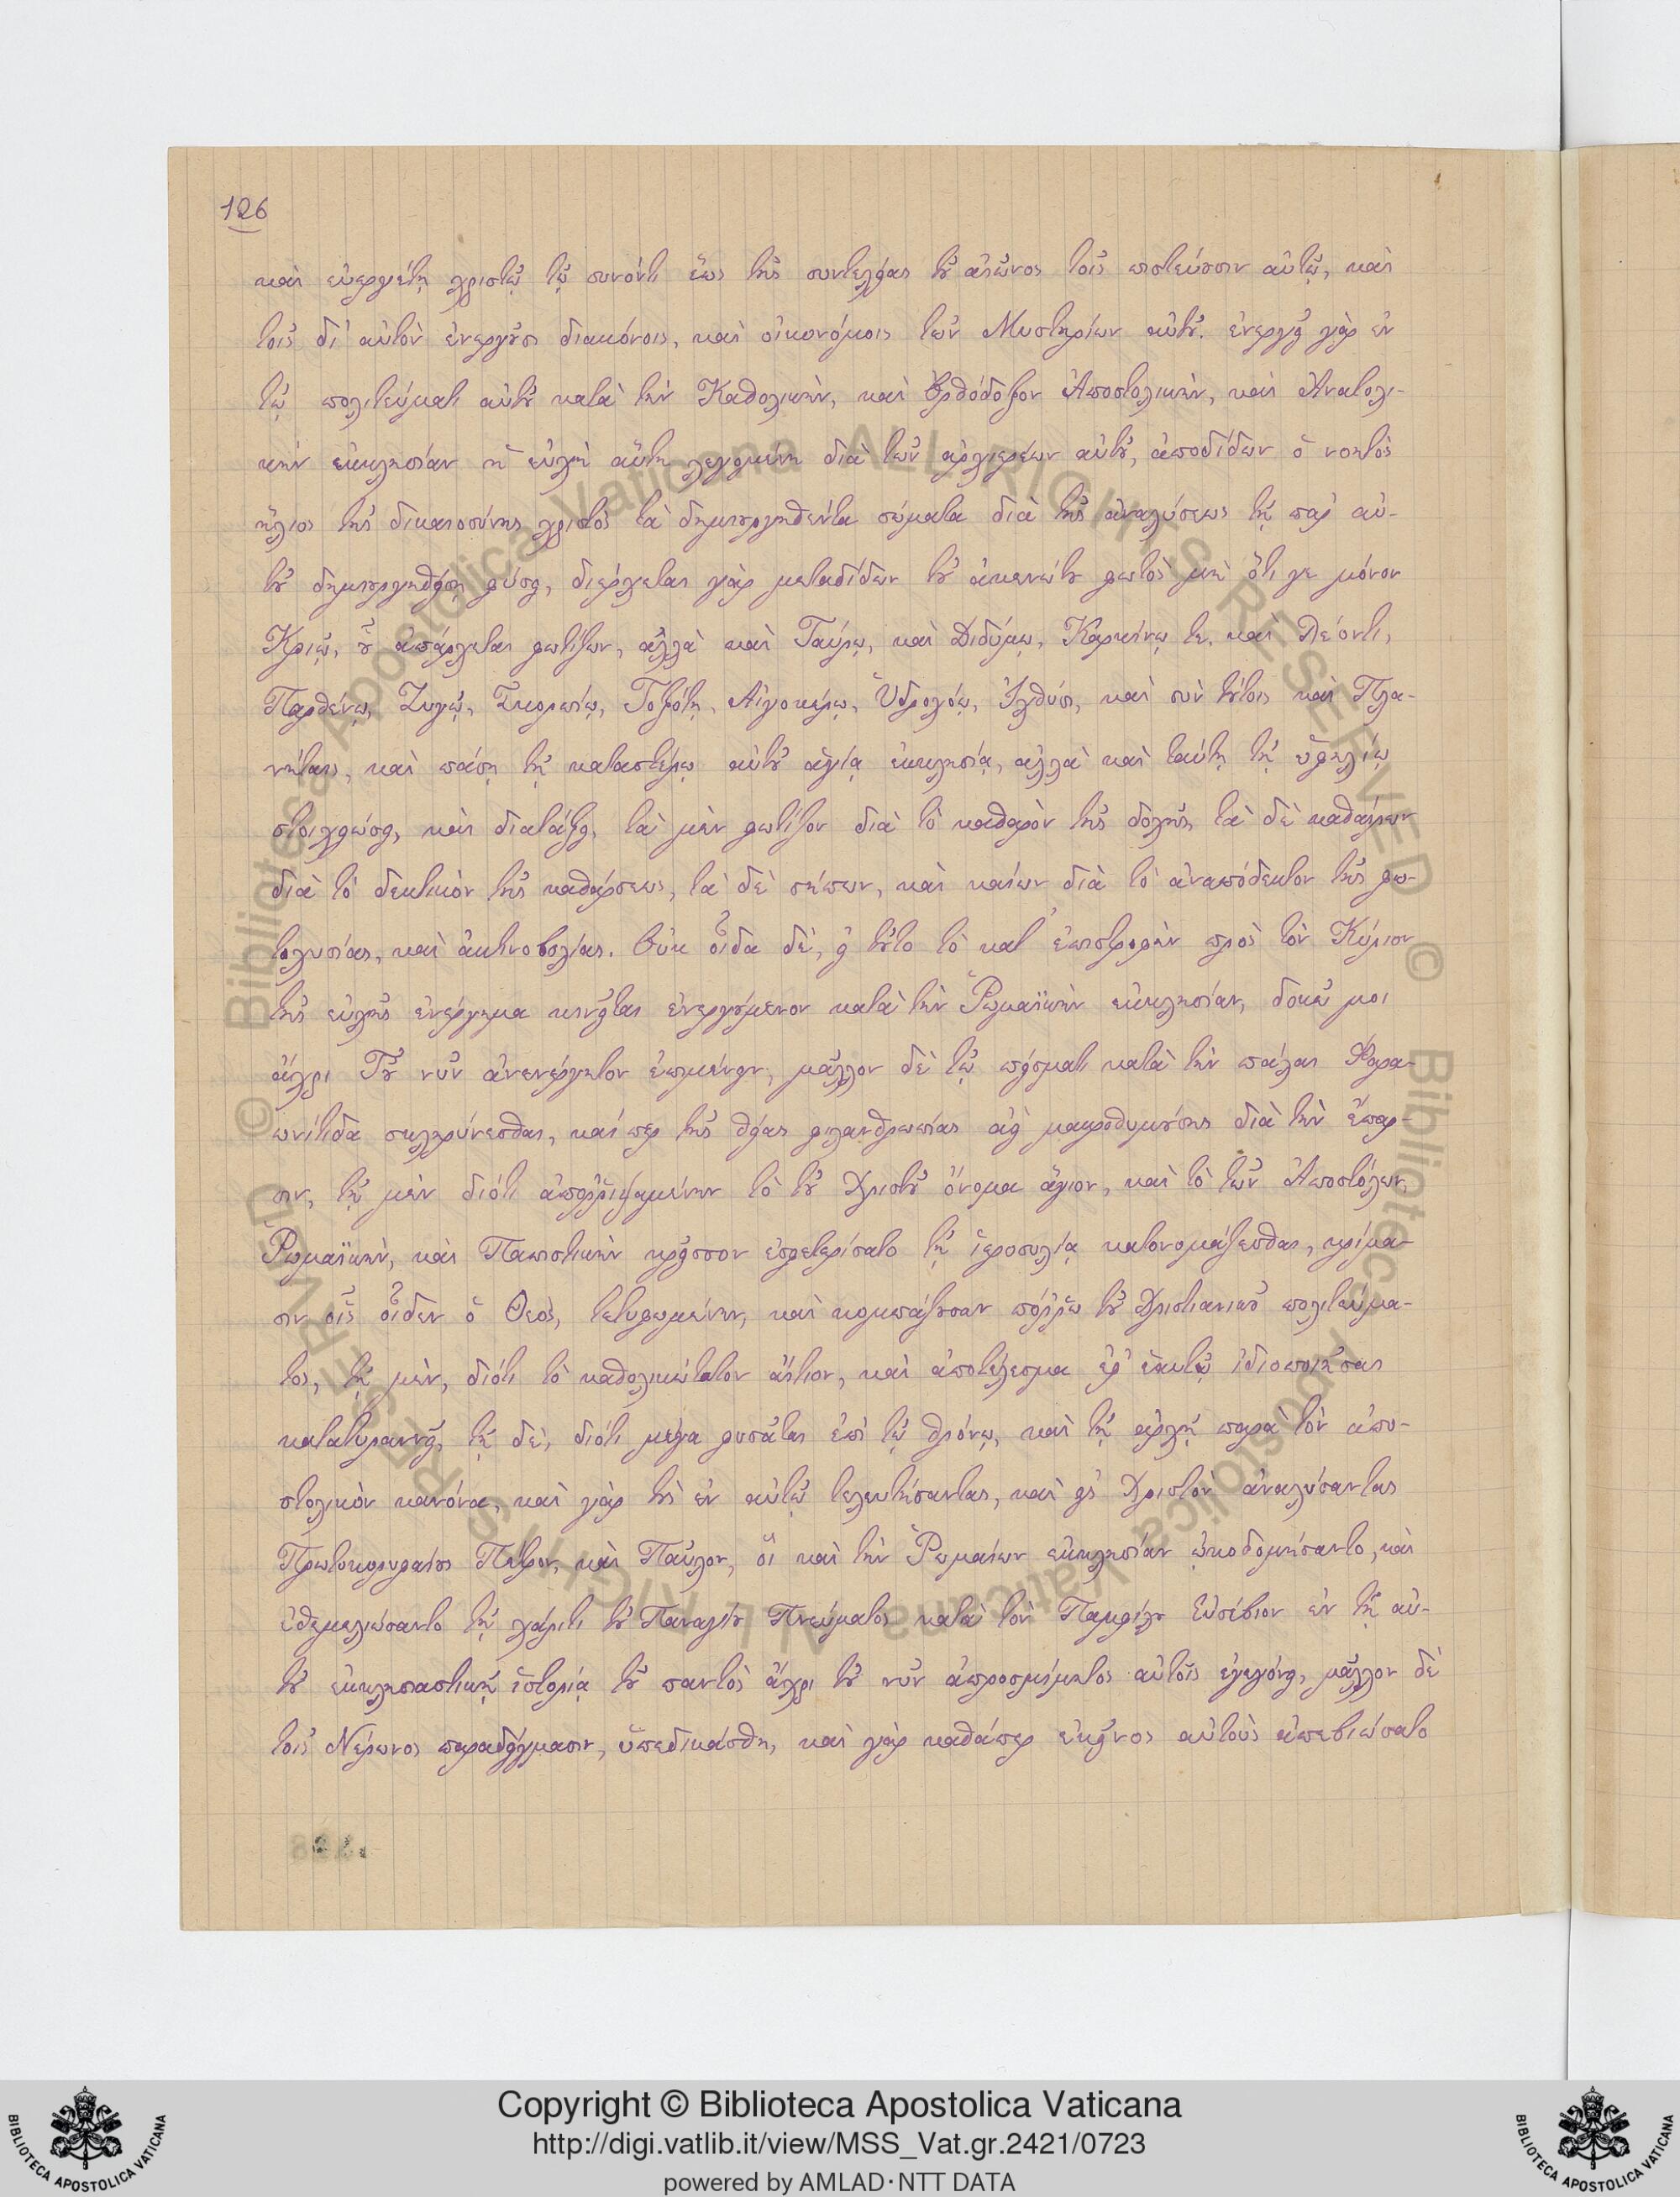 126
καὶ εὐεργέτῃ χριστῷ τῷ συνόντι ἕως τῆς συντελείας τοῦ αἰῶνος τοῖς πιστεύουσιν αὐτῷ, καὶ
τοῖς δι' αὐτὸν ἐνεργοῦσι διακόνοις, καὶ οἰκονόμοις τῶν Μυστηρίων αὐτοῦ. ἐνεργεῖ γὰρ ἐν
τῷ πολιτεύματι αὐτοῦ κατὰ τὴν Καθολικὴν, καὶ Ὀρθόδοξον Ἀποστολικὴν, καὶ Ἀνατολι-
κὴν ἐκκλησίαν ἡ εὐχὴ αὕτη λεγομένη διὰ τῶν ἀρχιερέων αὐτοῦ, ἀποδίδων ὁ νοητὸς
ἥλιος τῆς δικαιοσύνης χριστὸς τὰ δημιουργηθέντα σώματα διὰ τῆς ἀναλύσεως τῇ παρ' αὐ-
τοῦ δημιουργηθείσῃ φύσει, διέρχεται γὰρ μεταδίδων τοῦ ἀκενώτου φωτὸς μὴ ὅτι γε μόνον
Κριῷ, οὗ ἀπάρχεται φωτίζων, ἀλλὰ καὶ Ταύρῳ, καὶ Διδύμῳ, Καρκίνῳ τε, καὶ Λέοντι,
Παρθένῳ, Ζυγῷ, Σκορπίῳ, Τοξότῃ, Αἰγοκέρῳ, Ὑδροχόῳ, Ἰχθύσι, καὶ σὺν τούτοις καὶ Πλα-
νήταις, καὶ πάσῃ τῇ καταστέρῳ αὐτοῦ ἁγίᾳ ἐκκλησίᾳ, ἀλλὰ καὶ ταύτῃ τῇ ὑφηλίῳ
στοιχειώσει, καὶ διατάξει, τὰ μὲν φωτίζον διὰ τὸ καθαρὸν τῆς δοχῆς, τὰ δὲ καθαίρων
διὰ τὸ δεκτικὸν τῆς καθάρσεως, τὰ δὲ σήπων, καὶ καίων διὰ τὸ ἀναπόδεκτον τῆς φω-
τοχυσίας, καὶ ἀκτινοβολίας. Οὐκ οἶδα δὲ, εἰ τοῦτο τὸ κατ' ἐπιστροφὴν πρὸς τὸν Κύριον
τῆς εὐχῆς ἐνέργημα κινεῖται ἐνεργούμενον κατὰ τὴν Ῥωμαϊκὴν ἐκκλησίαν, δοκεῖ μοι
ἄχρι Τοῦ νῦν ἀνενέργητον ἐπιμένειν, μᾶλλον δὲ τῷ πείσματι κατὰ τὴν πάλαι Φαρα-
ωνίτιδα σκληρύνεσθαι, καίπερ τῆς θείας φιλανθρωπίας ἀεὶ μακροθυμούσης διὰ τὴν ἔπαρ-
σιν, τῇ μὲν διότι ἀπορριψαμένην τὸ τοῦ Χριστοῦ ὄνομα ἅγιον, καὶ τὸ τῶν Ἀποστόλων,
Ῥωμαϊκὴν, καὶ Παπιστικὴν κρεῖσσον ἐσφετερίσατο τῇ ἱεροσυλίᾳ κατονομάζεσθαι, κρίμα-
σιν οἷς οἶδεν ὁ Θεὸς, τετυφωμένην, καὶ κομπάζουσαν πόρρω τοῦ Χριστιανικοῦ πολιτεύμα-
τος, τῇ μὲν, διότι τὸ καθολικώτατον αἴτιον, καὶ ἀποτέλεσμα ἐφ' ἑαυτῷ ἰδιοποιῆσαι
κατατυραννεῖ, τῇ δὲ, διότι μέγα φυσᾶται ἐπὶ τῷ θρόνῳ, καὶ τῇ ἀρχῇ παρὰ τὸν ἀπο-
στολικὸν κανόνα, καὶ γὰρ τοὺς ἐν αὐτῷ τελευτήσαντας, καὶ εἰς Χριστὸν ἀναλύσαντας
Πρωτοκορυφαίους Πέτρον, καὶ Παῦλον, οἳ καὶ τὴν Ῥωμαίων ἐκκλησίαν ᾠκοδομήσαντο, καὶ
ἐθεμελιώσαντο τῇ χάριτι τοῦ Παναγίου Πνεύματος κατὰ τὸν Παμφίλου Εὐσέβιον ἐν τῇ αὐ-
τοῦ ἐκκλησιαστικῇ ἱστορίᾳ τοῦ παντὸς ἄχρι τοῦ νῦν ἀπροσμίμητος αὐτοῖς ἐγεγόνει, μᾶλλον δὲ
τοῖς Νέρωνος παραδείγμασιν, ὑπεδικάσθη, καὶ γὰρ καθάπερ ἐκεῖνος αὐτοὺς ἀπεβιώσατο
© Biblioteca Apostolica Vaticana ALL RIGHTS RESERVED
© Biblioteca Apostolica Vaticana ALL RIGHTS RESERVED
BIBLIOTECA APOSTOLICA VATICANA
Copyright © Biblioteca Apostolica Vaticana
http://digi.vatlib.it/view/MSS_Vat.gr.2421/0723
powered by AMLAD·NTT DATA
BIBLIOTECA APOSTOLICA VATICANA